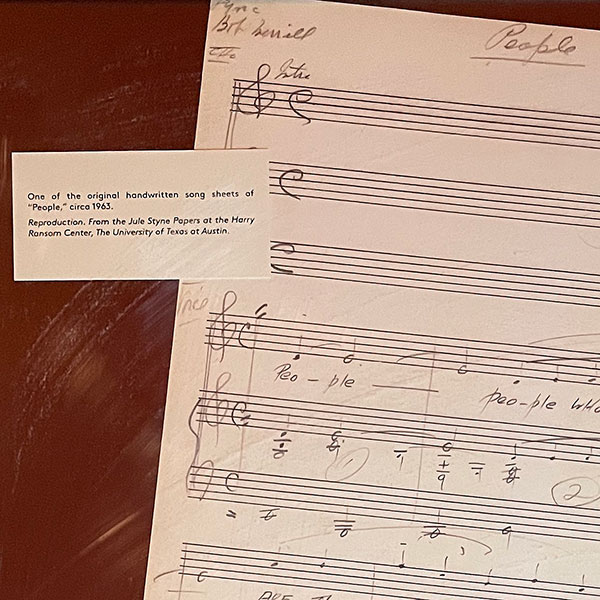 Bob Merrill
People
Intro
One of the original handwritten song sheets of
"People," circa 1963.
Reproduction. From the Jule Styne Papers at the Harry
Ransom Center, The University of Texas at Austin.
Peo - ple
peo-ple who
1
2
ARE